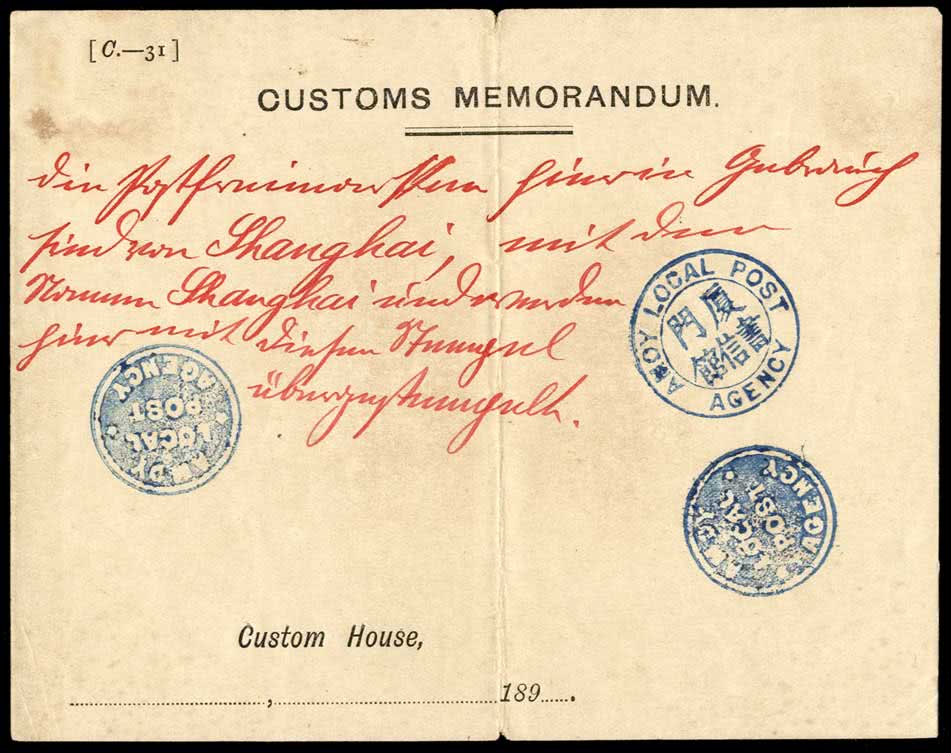 [C.—31]
CUSTOMS MEMORANDUM.
Die Postfreimarken hier in Gebrauch
sind von Shanghai, mit dem
Namen Shanghai und werden
hier mit diesem Stempel
überzustempelt.
AMOY LOCAL POST AGENCY
廈門
書信館
AMOY LOCAL POST AGENCY
AMOY LOCAL POST AGENCY
Custom House,
, 189 .